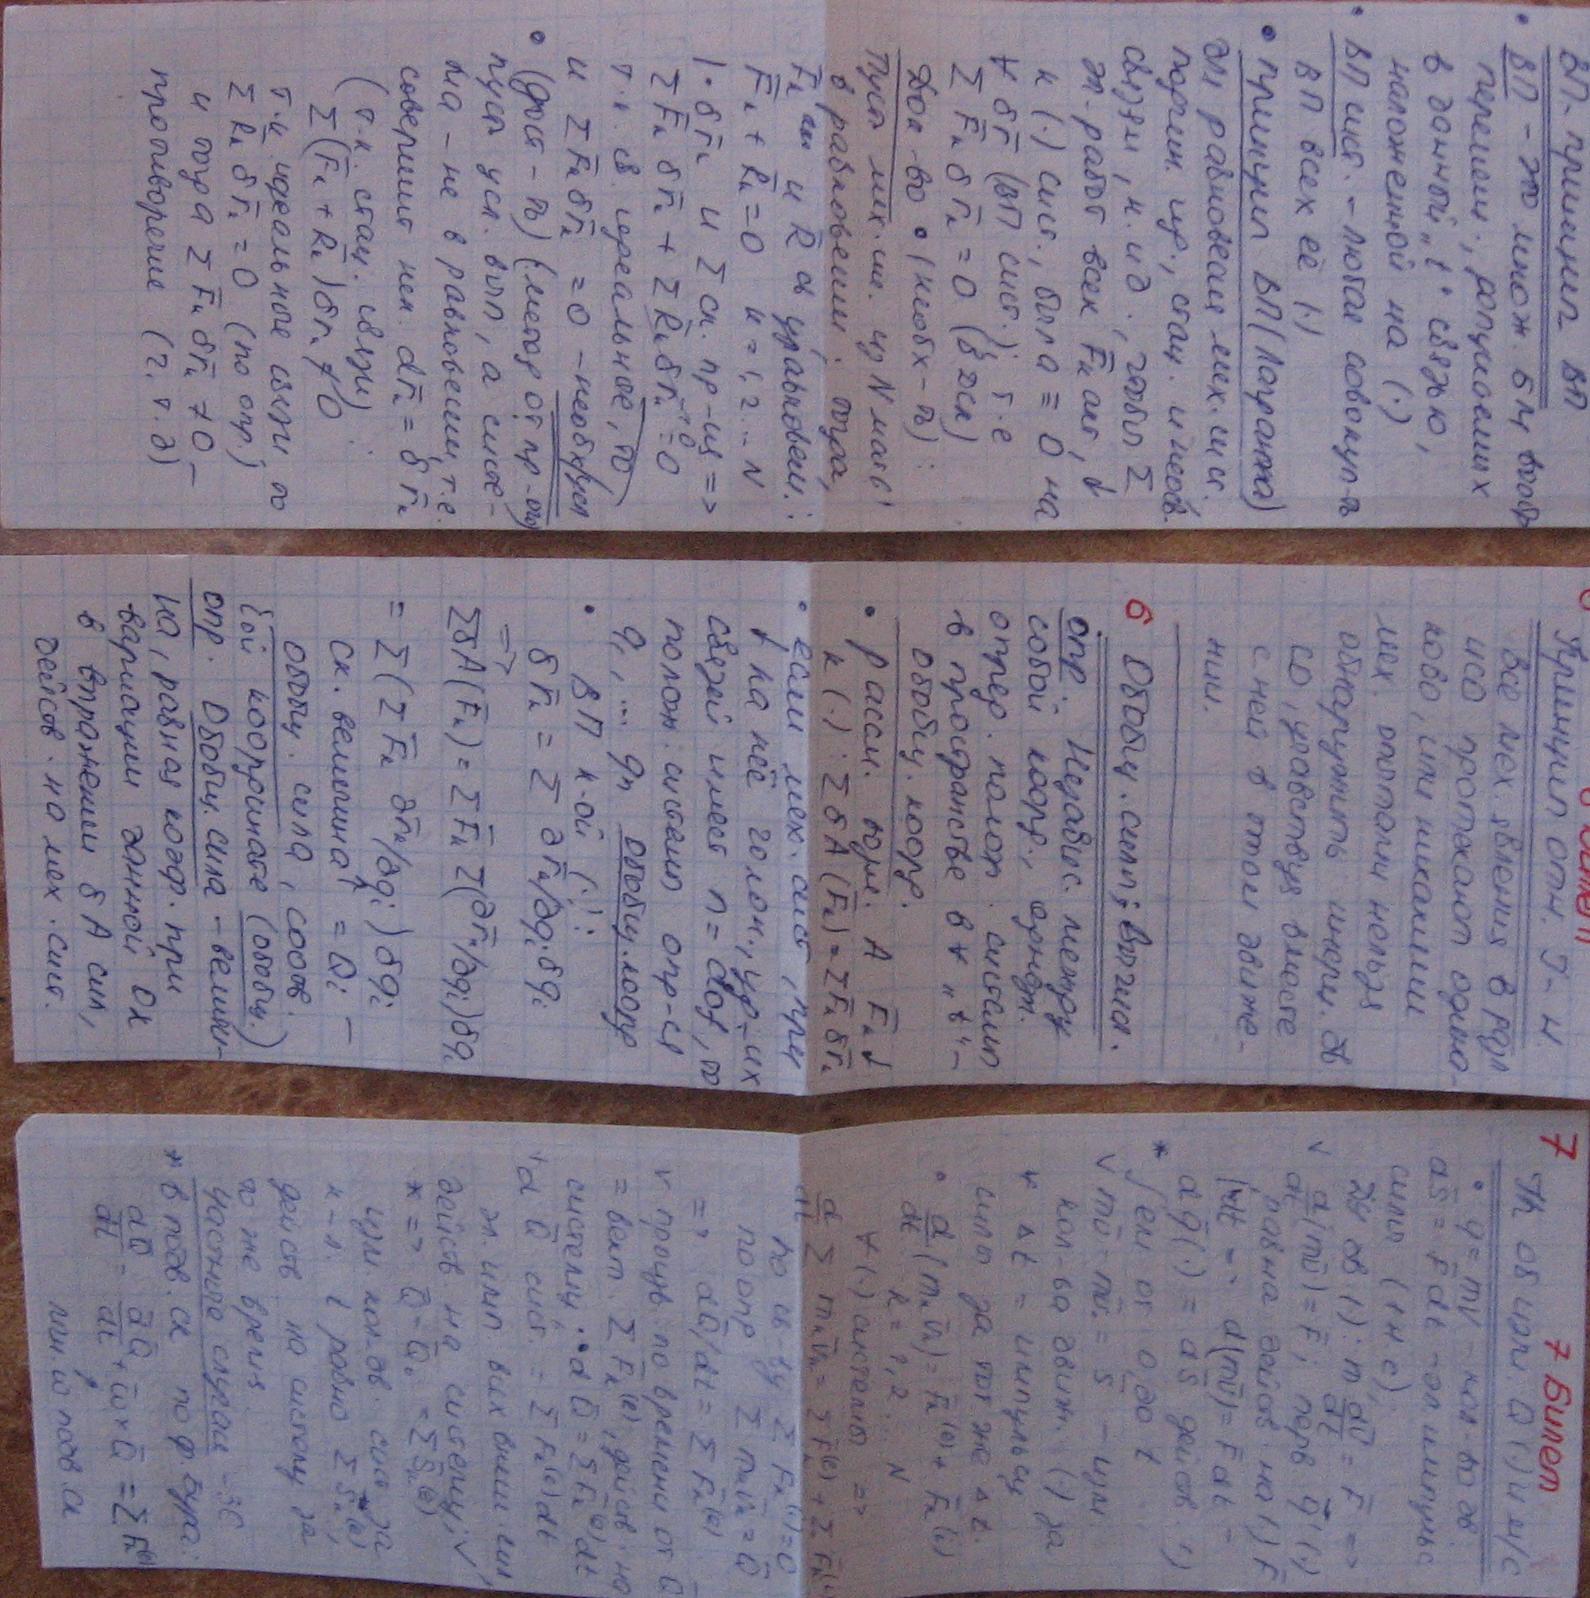 ВП. принцип ВП
• ВП – это множ. б/м вообр
перемещ., допускаемых
в данной „t“ связью,
наложенной на (·)
• ВП сист. – любая совокуп-ть
ВП всех её (·)
• принцип ВП (Лагранжа)
для равновесия мех. сист.
подчин. ид., стац. и неосв.
связям, н. и д., чтобы Σ
эл. работ всех F̄к акт, ↓
к (·) сист., была ≡ 0 на
∀ δr̄ (ВП сист.); т.е
Σ F̄к δr̄к = 0 (в ДСК)
Док-во • (необх-ть):
Пусть мех. си. из N мат(·)
в равновесии. тогда,
F̄к акт и R̄ св уравновеш.:
F̄к + R̄к = 0 к = 1, 2... N
1· δr̄к и Σ ск. пр-ия =>
Σ F̄к δr̄к + Σ R̄к δr̄к = 0
т.к. св. идеальные, то
и Σ F̄к δr̄к = 0 – необходим
• (дост-ть) (метод от пр-ого)
пусть усл. вып, а систе-
ма – не в равновесии, т.е.
совершит нек. dr̄к = δr̄к
(т.к. стац. связи) :
Σ(F̄к + R̄к) δr̄к ≠ 0
т.к. идеальные связи, то
Σ R̄к δr̄к = 0 (по опр)
и тогда Σ F̄к δr̄к ≠ 0 –
противоречие (ч. т. д)
Принцип отн. Г-я
Все мех. явления в
ИСО протекают одина-
ково, или никакими
мех. опытами нельзя
обнаружить инерц. дв
СО, участвуя вместе
с ней в этом движе-
нии.
6 Обобщ. силы; вычисл.
опр. Независ. между
собой коорд., однозн.
опред. полож. системы
в пространстве в ∀ „t“ –
обобщ. коорд.
• рассм. возм. A F̄к ↓
к (·): Σ δA(F̄к) = Σ F̄к δr̄к
• если мех. сист, при
↓ на неё голон., уд-их
связей имеет n = dof, то
полож. системы опр-ся
q₁ ... qn обобщ. коорд
• ВП к-ой (·):
δr̄к = Σ ∂r̄к/∂qi · δqi
=>
ΣδA(F̄к) = Σ F̄к Σ(∂r̄к/∂qi) δqi
= Σ(Σ F̄к ∂r̄к/∂qi) δqi
ск. величина = Qi –
обобщ. сила, соотв.
i-ой координате (обобщ.)
опр. Обобщ. сила – величи-
на, равная коэф. при
вариации данной ОК
в выражении δA сил,
действ. на мех. сист.
7 7 Билет
Тh об изм. Q (·) и м/с
• q̄ = mv̄ – кол-во дв.
dS̄ = F̄dt – эл импульс
силы (1н·с)
ДУ дв (·): m dv̄/dt = F̄ =>
v d/dt (mv̄) = F̄; перв q̄ (·)
равна действ. на (·) F̄
1·dt → d(mv̄) = F̄dt –
dq̄(·) = dS̄ действ. (·)
* ∫ ем от 0 до t
v mv̄ - mv̄₀ = S̄ – изм.
кол-ва движ. (·) за
∀ Δt = импульсу
силы за тот же Δt.
• d/dt (mкv̄к) = F̄к(e) + F̄к(i)
к = 1, 2... N
∀ (·) системы =>
d/dt Σ mкv̄к = Σ F̄к(e) + Σ F̄к(i)
по св-ву Σ F̄к(i) = 0
по опр Σ mкv̄к = Q̄
=> dQ̄/dt = Σ F̄к(e)
v произв. по времени от Q̄
= вект. Σ F̄к(e), действ. на
систему. • dQ̄ = Σ F̄к(e)dt
v dQ̄ сист. = Σ F̄к(e)dt
эл. имп всех внеш. сил
действ на систему; v,
* => Q̄ - Q̄₀ = Σ S̄к(e)
изм кол. дв. сист за
к-л. t равно Σ S̄к(e),
действ на систему за
то же время
Частные случаи – ЗС
* в подв. ск по ф. Бура:
dQ̄/dt = d̃Q̄/dt + ω̄ × Q̄ = Σ F̄к(e)
ω подв. ск